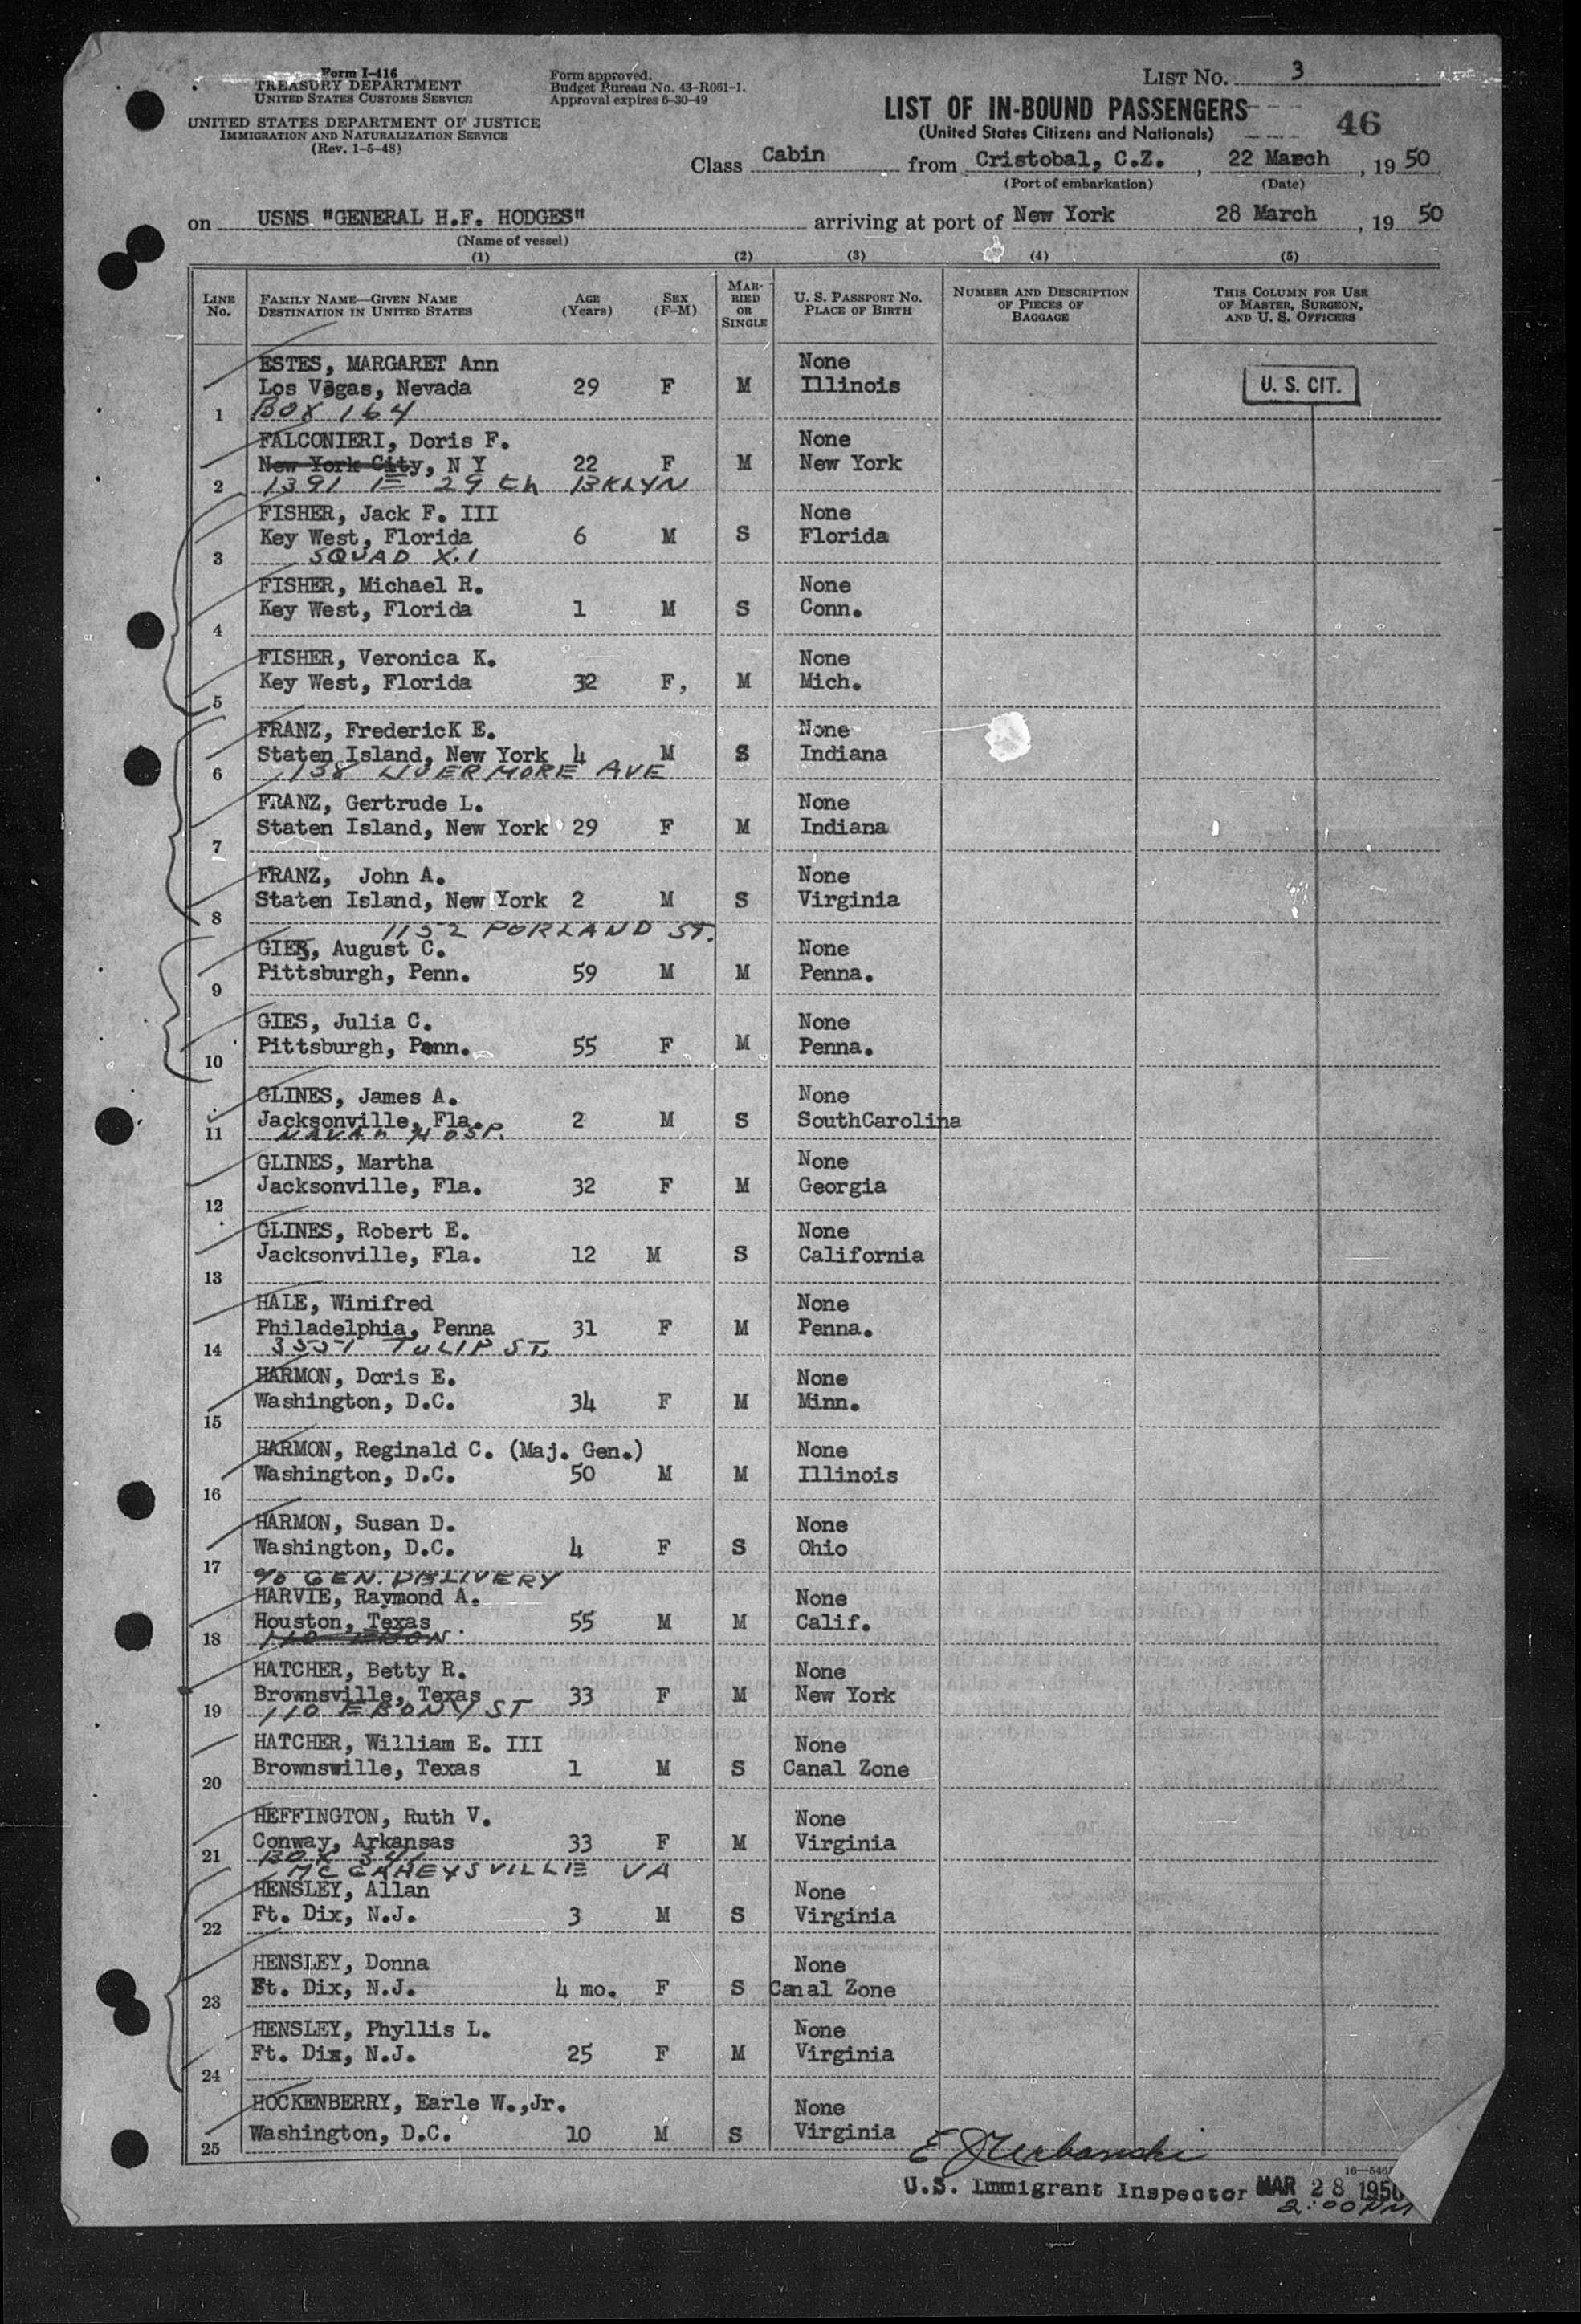 Form I-416
TREASURY DEPARTMENT
UNITED STATES CUSTOMS SERVICE
UNITED STATES DEPARTMENT OF JUSTICE
IMMIGRATION AND NATURALIZATION SERVICE
(Rev. 1-5-48)
Form approved.
Budget Bureau No. 43-R061-1.
Approval expires 6-30-49
LIST NO. 3
LIST OF IN-BOUND PASSENGERS
(United States Citizens and Nationals)
46
Class Cabin from Cristobal, C.Z., 22 March, 19 50
(Port of embarkation) (Date)
on USNS "GENERAL H.F. HODGES" arriving at port of New York 28 March, 19 50
(Name of vessel)
(1) (2) (3) (4) (5)
LINE No. FAMILY NAME—GIVEN NAME DESTINATION IN UNITED STATES AGE (Years) SEX (F-M) MARRIED OR SINGLE U. S. PASSPORT NO. PLACE OF BIRTH NUMBER AND DESCRIPTION OF PIECES OF BAGGAGE THIS COLUMN FOR USE OF MASTER, SURGEON, AND U. S. OFFICERS
ESTES, MARGARET Ann None
Los Vegas, Nevada 29 F M Illinois U. S. CIT.
1 BOX 164
FALCONIERI, Doris F. None
New York City, N Y 22 F M New York
2 1391 E 29th BKLYN
FISHER, Jack F. III None
Key West, Florida 6 M S Florida
3 SQUAD X.1
FISHER, Michael R. None
Key West, Florida 1 M S Conn.
4
FISHER, Veronica K. None
Key West, Florida 32 F, M Mich.
5
FRANZ, FredericK E. None
Staten Island, New York 4 M S Indiana
6 138 LIVERMORE AVE
FRANZ, Gertrude L. None
Staten Island, New York 29 F M Indiana
7
FRANZ, John A. None
Staten Island, New York 2 M S Virginia
8
1152 PORLAND ST.
GIES, August C. None
Pittsburgh, Penn. 59 M M Penna.
9
GIES, Julia C. None
Pittsburgh, Penn. 55 F M Penna.
10
GLINES, James A. None
Jacksonville, Fla. 2 M S SouthCarolina
11 NAVAL HOSP.
GLINES, Martha None
Jacksonville, Fla. 32 F M Georgia
12
GLINES, Robert E. None
Jacksonville, Fla. 12 M S California
13
HALE, Winifred None
Philadelphia, Penna 31 F M Penna.
14 3551 TULIP ST.
HARMON, Doris E. None
Washington, D.C. 34 F M Minn.
15
HARMON, Reginald C. (Maj. Gen.) None
Washington, D.C. 50 M M Illinois
16
HARMON, Susan D. None
Washington, D.C. 4 F S Ohio
17
% GEN. DELIVERY
HARVIE, Raymond A. None
Houston, Texas 55 M M Calif.
18 110
HATCHER, Betty R. None
Brownsville, Texas 33 F M New York
19 110 EBONY ST
HATCHER, William E. III None
Brownswille, Texas 1 M S Canal Zone
20
HEFFINGTON, Ruth V. None
Conway, Arkansas 33 F M Virginia
21 BOX 341
MCGAHEYSVILLE VA
HENSLEY, Allan None
Ft. Dix, N.J. 3 M S Virginia
22
HENSLEY, Donna None
Ft. Dix, N.J. 4 mo. F S Canal Zone
23
HENSLEY, Phyllis L. None
Ft. Dix, N.J. 25 F M Virginia
24
HOCKENBERRY, Earle W.,Jr. None
Washington, D.C. 10 M S Virginia
25
E J Urbanski
U.S. Immigrant Inspector MAR 28 1950
2:00 PM